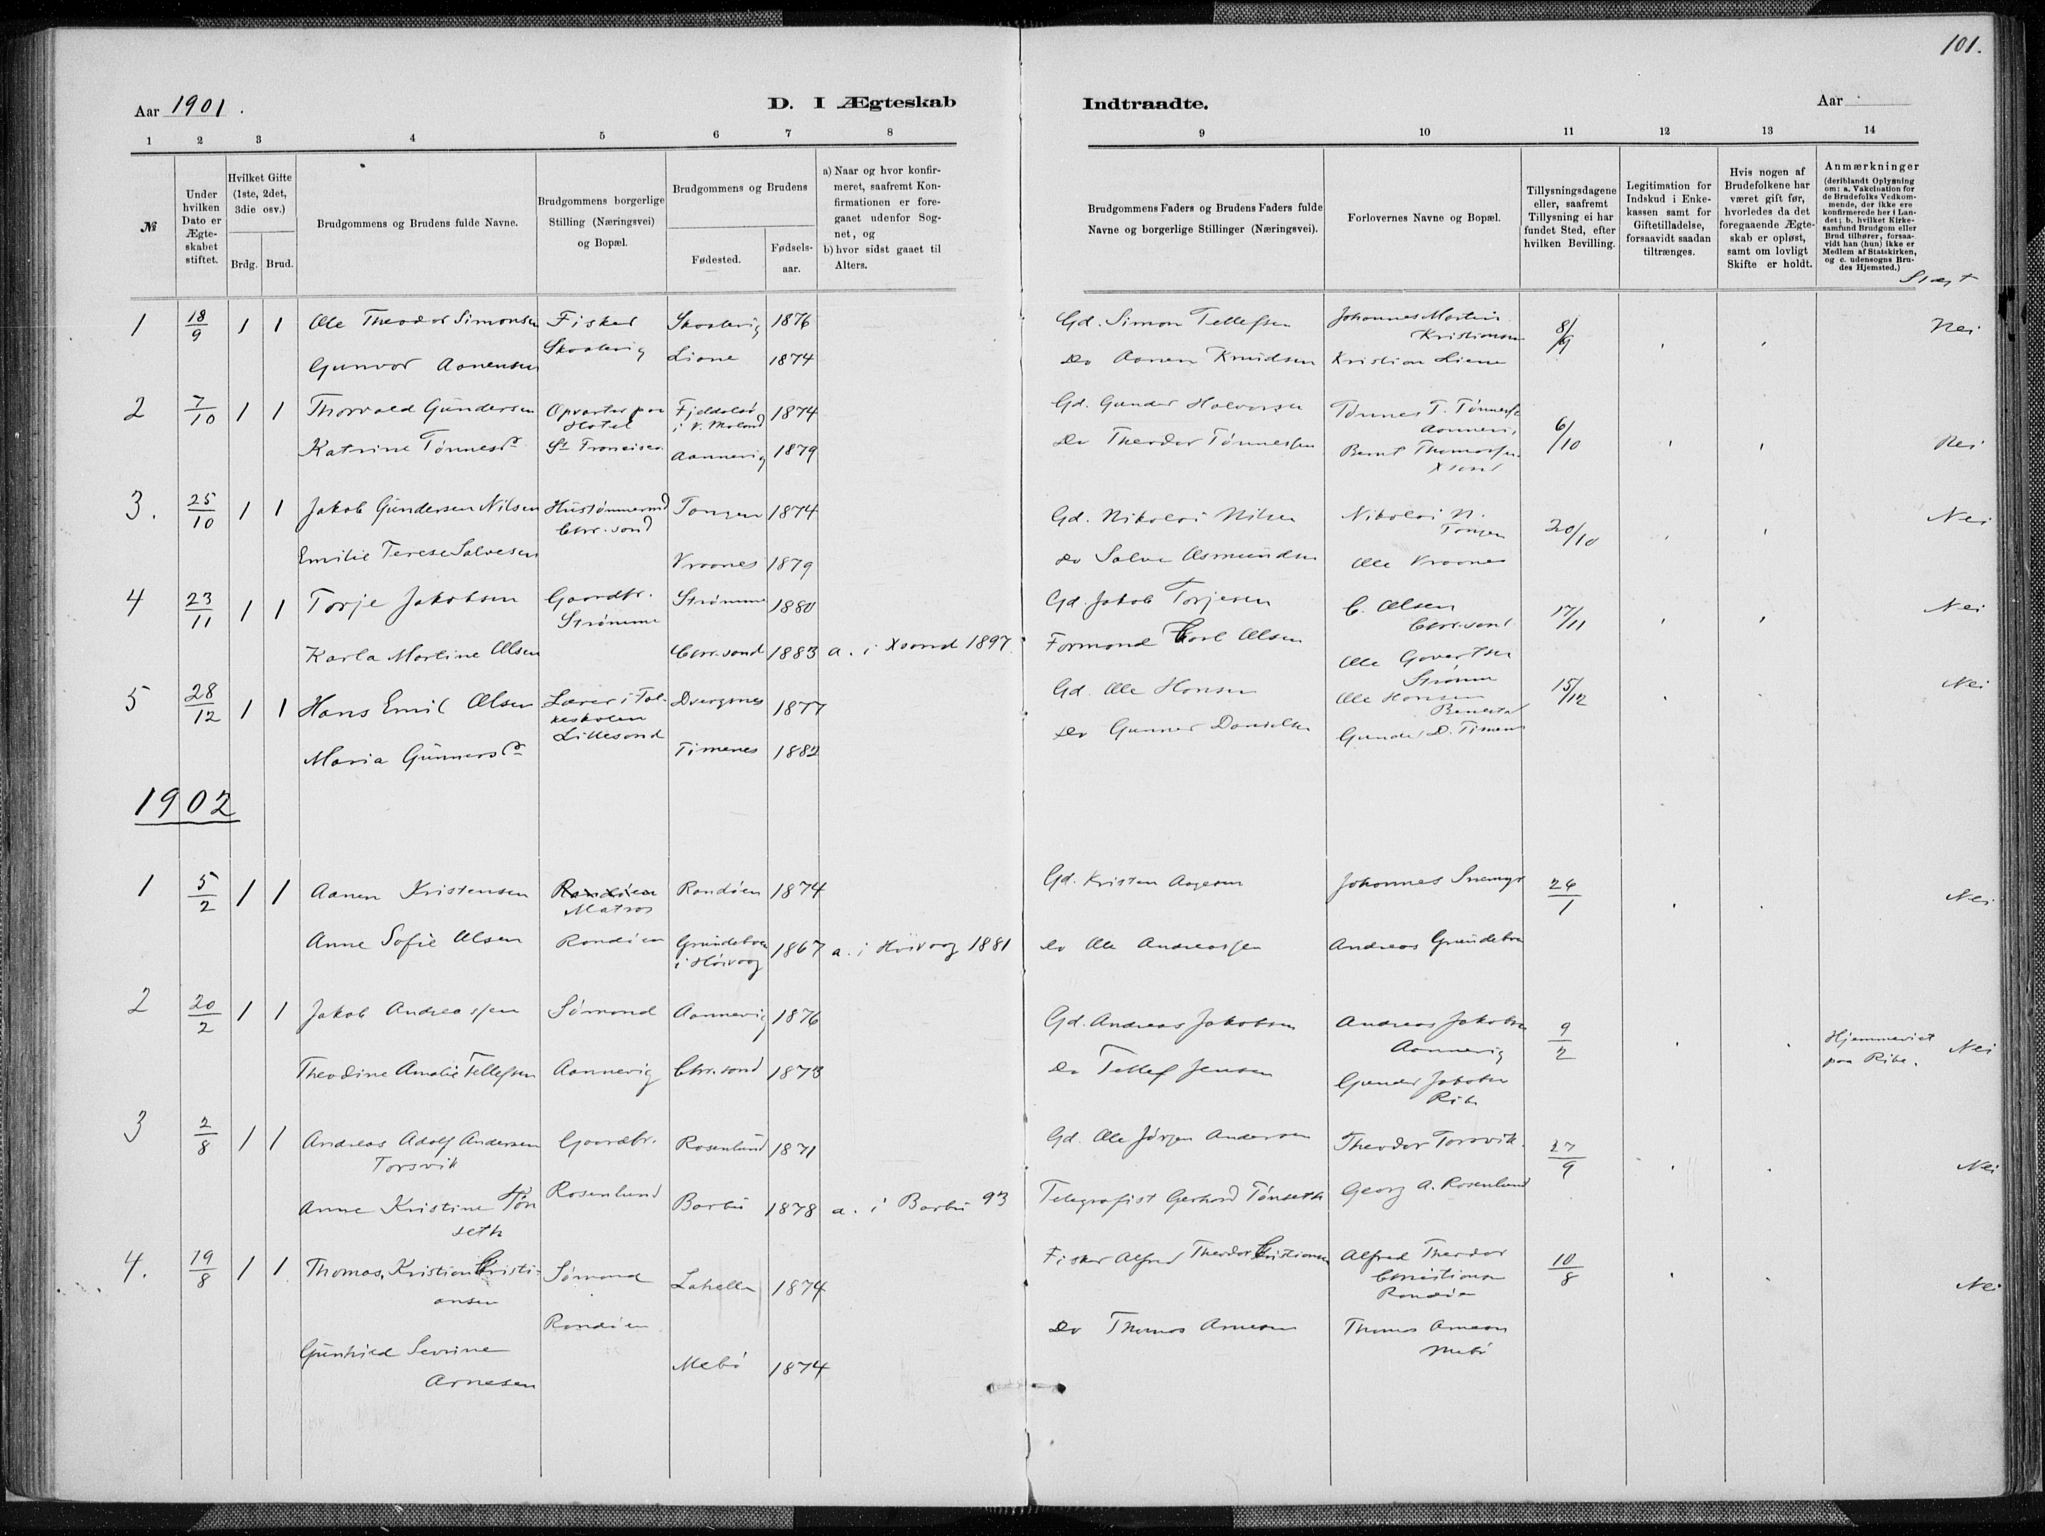 101.
Aar 1901.
D. I Ægteskab Indtraadte.
Aar
1 2 3 4 5 6 7 8 9 10 11 12 13 14
№
Under hvilken Dato er Ægteskabet stiftet.
Hvilket Gifte (1ste, 2det, 3die osv.)
Brdg. Brud.
Brudgommens og Brudens fulde Navne.
Brudgommens borgerlige Stilling (Næringsvei) og Bopæl.
Brudgommens og Brudens
Fødested.
Fødsels-aar.
a) Naar og hvor konfirmeret, saafremt Konfirmationen er foregaaet udenfor Sognet, og
b) hvor sidst gaaet til Alters.
Brudgommens Faders og Brudens Faders fulde Navne og borgerlige Stillinger (Næringsvei).
Forlovernes Navne og Bopæl.
Tillysningsdagene eller, saafremt Tillysning ei har fundet Sted, efter hvilken Bevilling.
Legitimation for Indskud i Enkekassen samt for Giftetilladelse, forsaavidt saadan tiltrænges.
Hvis nogen af Brudefolkene har været gift før, hvorledes da det foregaaende Ægteskab er opløst, samt om lovligt Skifte er holdt.
Anmærkninger
(deriblandt Oplysning om: a. Vakcination for de Brudefolks Vedkommende, der ikke ere konfirmerede her i Landet; b. hvilket Kirkesamfund Brudgom eller Brud tilhører, forsaavidt han (hun) ikke er Medlem af Statskirken, og c. udensogns Brudes Hjemsted.)
Slægt
1 18/9 1 1 Ole Theodor Simonsen Fisker Skaalevig Skaalevig 1876 Gd. Simon Tellefsen Johannes Martin Kristiansen 8/9 Nei
Gunvor Aanensen Liane 1874 Do Aanen Knudsen Kristian Liene
2 7/10 1 1 Thorvald Gundersen Opvarter paa Hotel Fjeldsbø i V. Moland 1874 Gd. Gunder Halvorsen Tønnes T. Tønnessen Aannevi. 6/10 Nei
Katrine Tønnesd. St Francisco Aannevig 1879 Do Theodor Tønnessen Bernt Thomassen Xsand
3. 25/10 1 1 Jakob Gundersen Nilsen Hustømmermd Chr.sand Tangen 1874 Gd. Nikolai Nilsen Nikolai N. Tangen 20/10 Nei
Emilie Terese Salvesen Vraanes 1879 Do Salve Asmundsen Ole Vraanes
4 23/11 1 1 Torje Jakobsen Gaardbr. Strømme Strømme 1880 Gd. Jakob Torjesen C. Olsen Chr.sand 17/11 Nei
Karla Martine Olsen Chr.sand 1883 a. i Xsand 1897. Formand Carl Olsen Ole Govertsen Strømme
5 28/12 1 1 Hans Emil Olsen Lærer i Folkeskolen Lillesand Dvergsnes 1877 Gd. Ole Hansen Ole Hansen Benestad 15/12 Nei
Maria Gunnersd. Timenes 1882 Do Gunner Danielsen Gunder D. Timenes
1902
1 5/2 1 1 Aanen Kristensen Randøen Matros Randøen 1874 Gd. Kristen Aagesen Johannes 26/1 Nei
Anne Sofie Olsen Randøen Grundebæ i Høivaag 1867 a. i Høivaag 1881 Do Ole Andreassen Andreas Grundebæ
2 20/2 1 1 Jakob Andreassen Sømand Aannevig 1876 Gd. Andreas Jakobsen Andreas Jakobsen Aannevig 9/2 Hjemmeviet paa Ribe. Nei
Theodine Amalie Tellefsen Aannevig Chr.sand 1873 Do Tellef Jensen Gunder Jakobsen Ribe
3 2/8 1 1 Andreas Adolf Andersen Torsvik Gaardbr. Rosenlund 1871 Gd. Ole Jørgen Andersen Theodor Torsvik. 27/9 Nei
Anne Kristine Tønseth Rosenlund Barbu 1878 a. i Barbu 93 Telegrafist Gerhard Tønseth Georg A. Rosenlund
4. 19/8 1 1 Thomas Kristian Cristiansen Sømand Lahella 1874 Fisker Alfred Theodor Cristiansen Alfred Theodor Christiansen Randøen 10/8 Nei
Gunhild Sevrine Arnesen Randøen Mebø 1874 Do Thomas Arnesen Thomas Arnesen Mebø